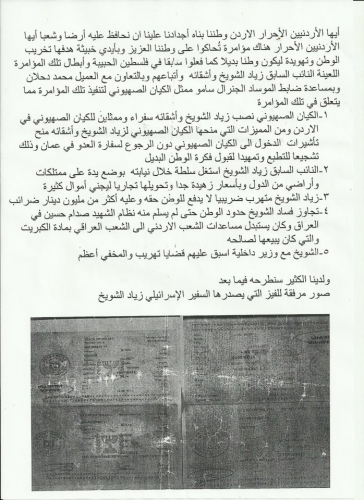 أيها الأردنيين الأحرار الاردن وطننا بناه أجدادنا علينا ان نحافظ عليه أرضا وشعبا أيها
الأردنيين الأحرار هناك مؤامرة تُحاكوا على وطننا العزيز وبأيدي خبيثة هدفها تخريب
الوطن وتهويدة ليكون وطنا بديلا كما فعلوا سابقا في فلسطين الحبيبة وأبطال تلك المؤامرة
اللعينة النائب السابق زياد الشويخ وأشقائه وأتباعهم وبالتعاون مع العميل محمد دحلان
وبمساعدة ضابط الموساد الجنرال سامو ممثل الكيان الصهيوني لتنفيذ تلك المؤامرة مما
يتعلق في تلك المؤامرة
١-الكيان الصهيوني نصب زياد الشويخ وأشقائه سفراء وممثلاين للكيان الصهيوني في
الاردن ومن المميزات التي منحها الكيان الصهيوني لزياد الشويخ وأشقائه منح
تأشيرات الدخول الى الكيان الصهيوني دون الرجوع لسفارة العدو في عمان وذلك
تشجيعا للتطبيع وتمهيدا لقبول فكرة الوطن البديل
٢-النائب السابق زياد الشويخ استغل سلطة خلال نيابته بوضع يدة على ممتلكات
وأراضي من الدول وبأسعار زهيدة جدا وتحويلها تجاريا ليجني أموال كثيرة
٣-زياد الشويخ متهرب ضريبيا لا يدفع للوطن حقه وعليه أكثر من مليون دينار ضرائب
٤-تجاوز فساد الشويخ حدود الوطن حتى لم يسلم منه نظام الشهيد صدام حسين في
العراق وكان يستبدل مساعدات الشعب الاردني الى الشعب العراقي بمادة الكبريت
والتي كان يبيعها لصالحه
٥-الشويخ مع وزير داخلية اسبق عليهم قضايا تهريب والمخفي أعظم
ولدينا الكثير سنطرحه فيما بعد
صور مرفقة للفيز التي يصدرها السفير الإسرائيلي زياد الشويخ